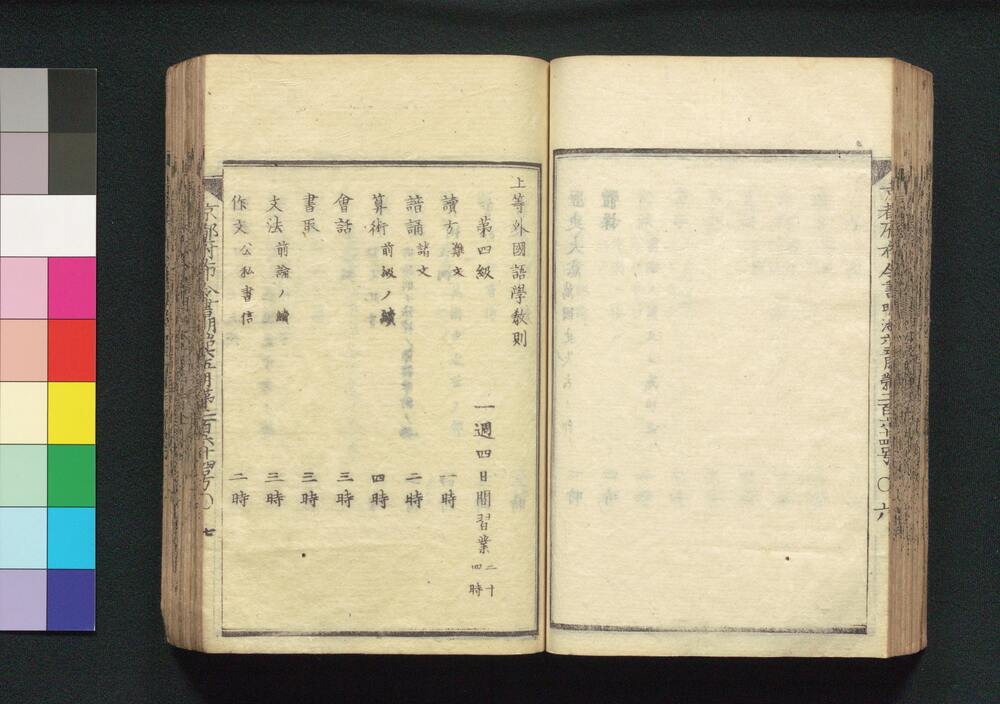 京都府布令書明治六年五月第二百六十四号 〇 六
上等外國語學教則
第四級 一週四日間習業二十四時
讀方雜文 一時
諳誦諸文 二時
算術前級ノ續 四時
會話 三時
書取 三時
文法前論ノ續 三時
作文公私書信 二時
京都府布令書明治六年五月第二百六十四号 〇 七